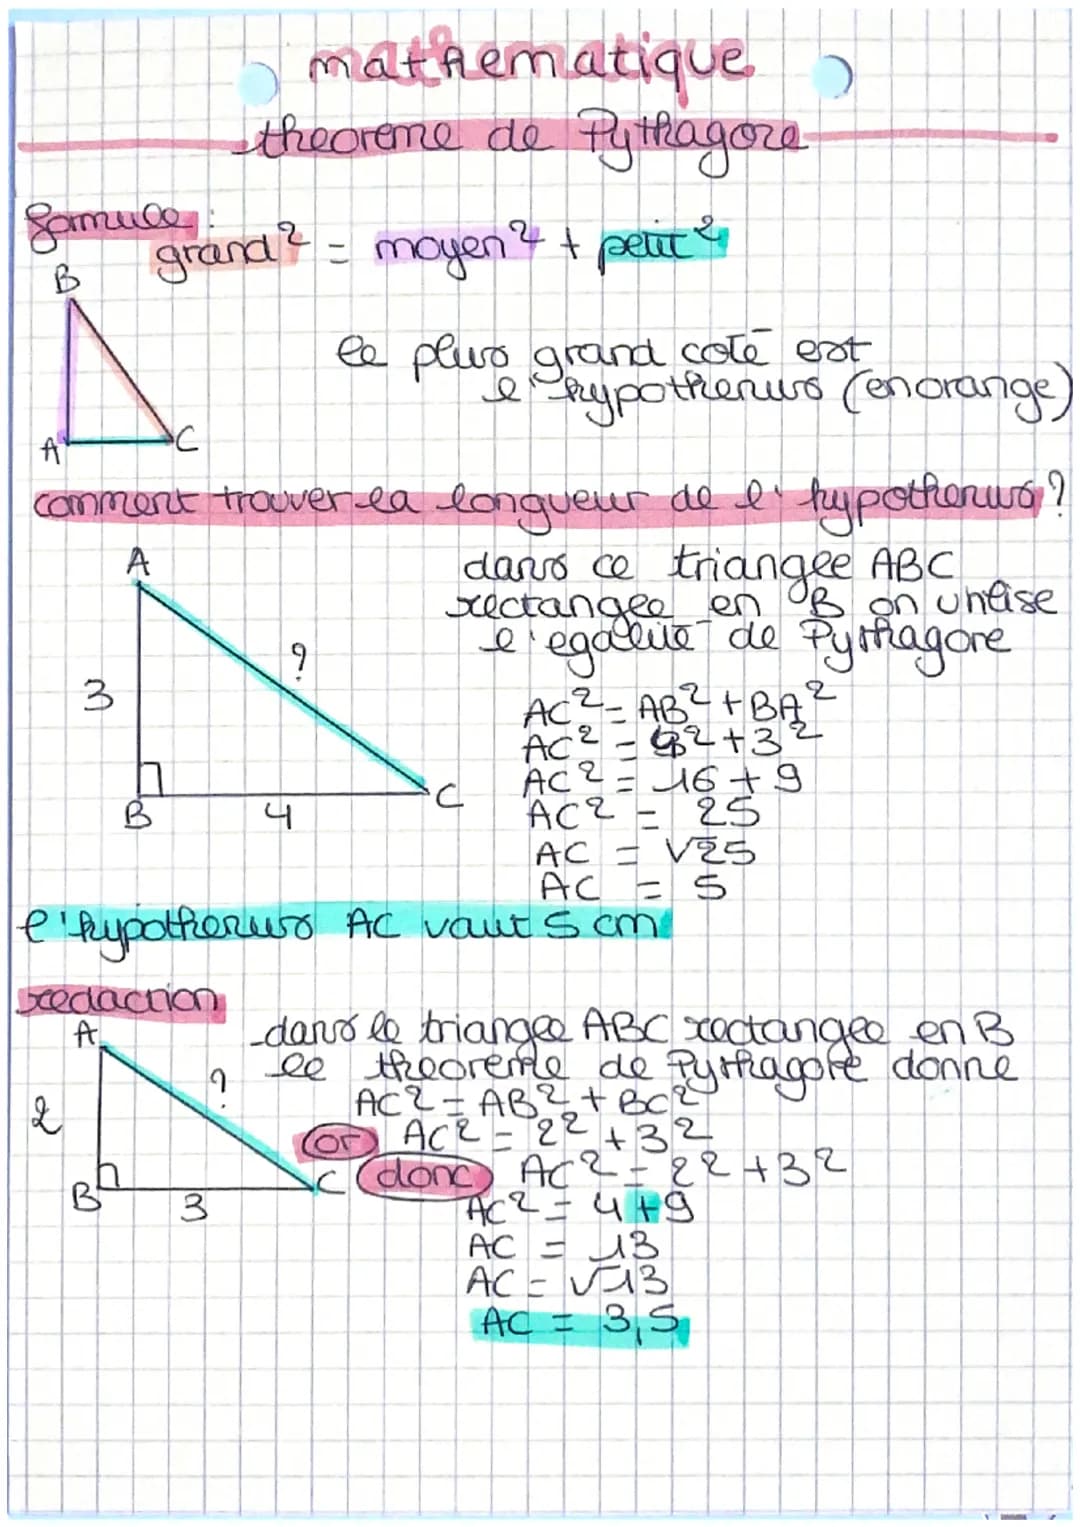 mathematique
theoreme de Pythagore
formule :
grand² = moyen² + petit²
B
A
C
le plus grand coté est
l'hypothenus (en orange)
comment trouver la longueur de l'hypothenus ?
A
?
3
B
4
C
dans ce triangle ABC
rectangle en B on utilise
l'egalité de Pythagore
AC² = AB² + BA²
AC² = 4² + 3²
AC² = 16 + 9
AC² = 25
AC = √25
AC = 5
l'hypothenus AC vaut 5 cm
redaction
A
?
2
B
3
C
dans le triangle ABC rectangle en B
le theoreme de Pythagore donne
AC² = AB² + BC²
or AC² = 2² + 3²
donc AC² = 2² + 3²
AC² = 4 + 9
AC = 13
AC = √13
AC = 3,5